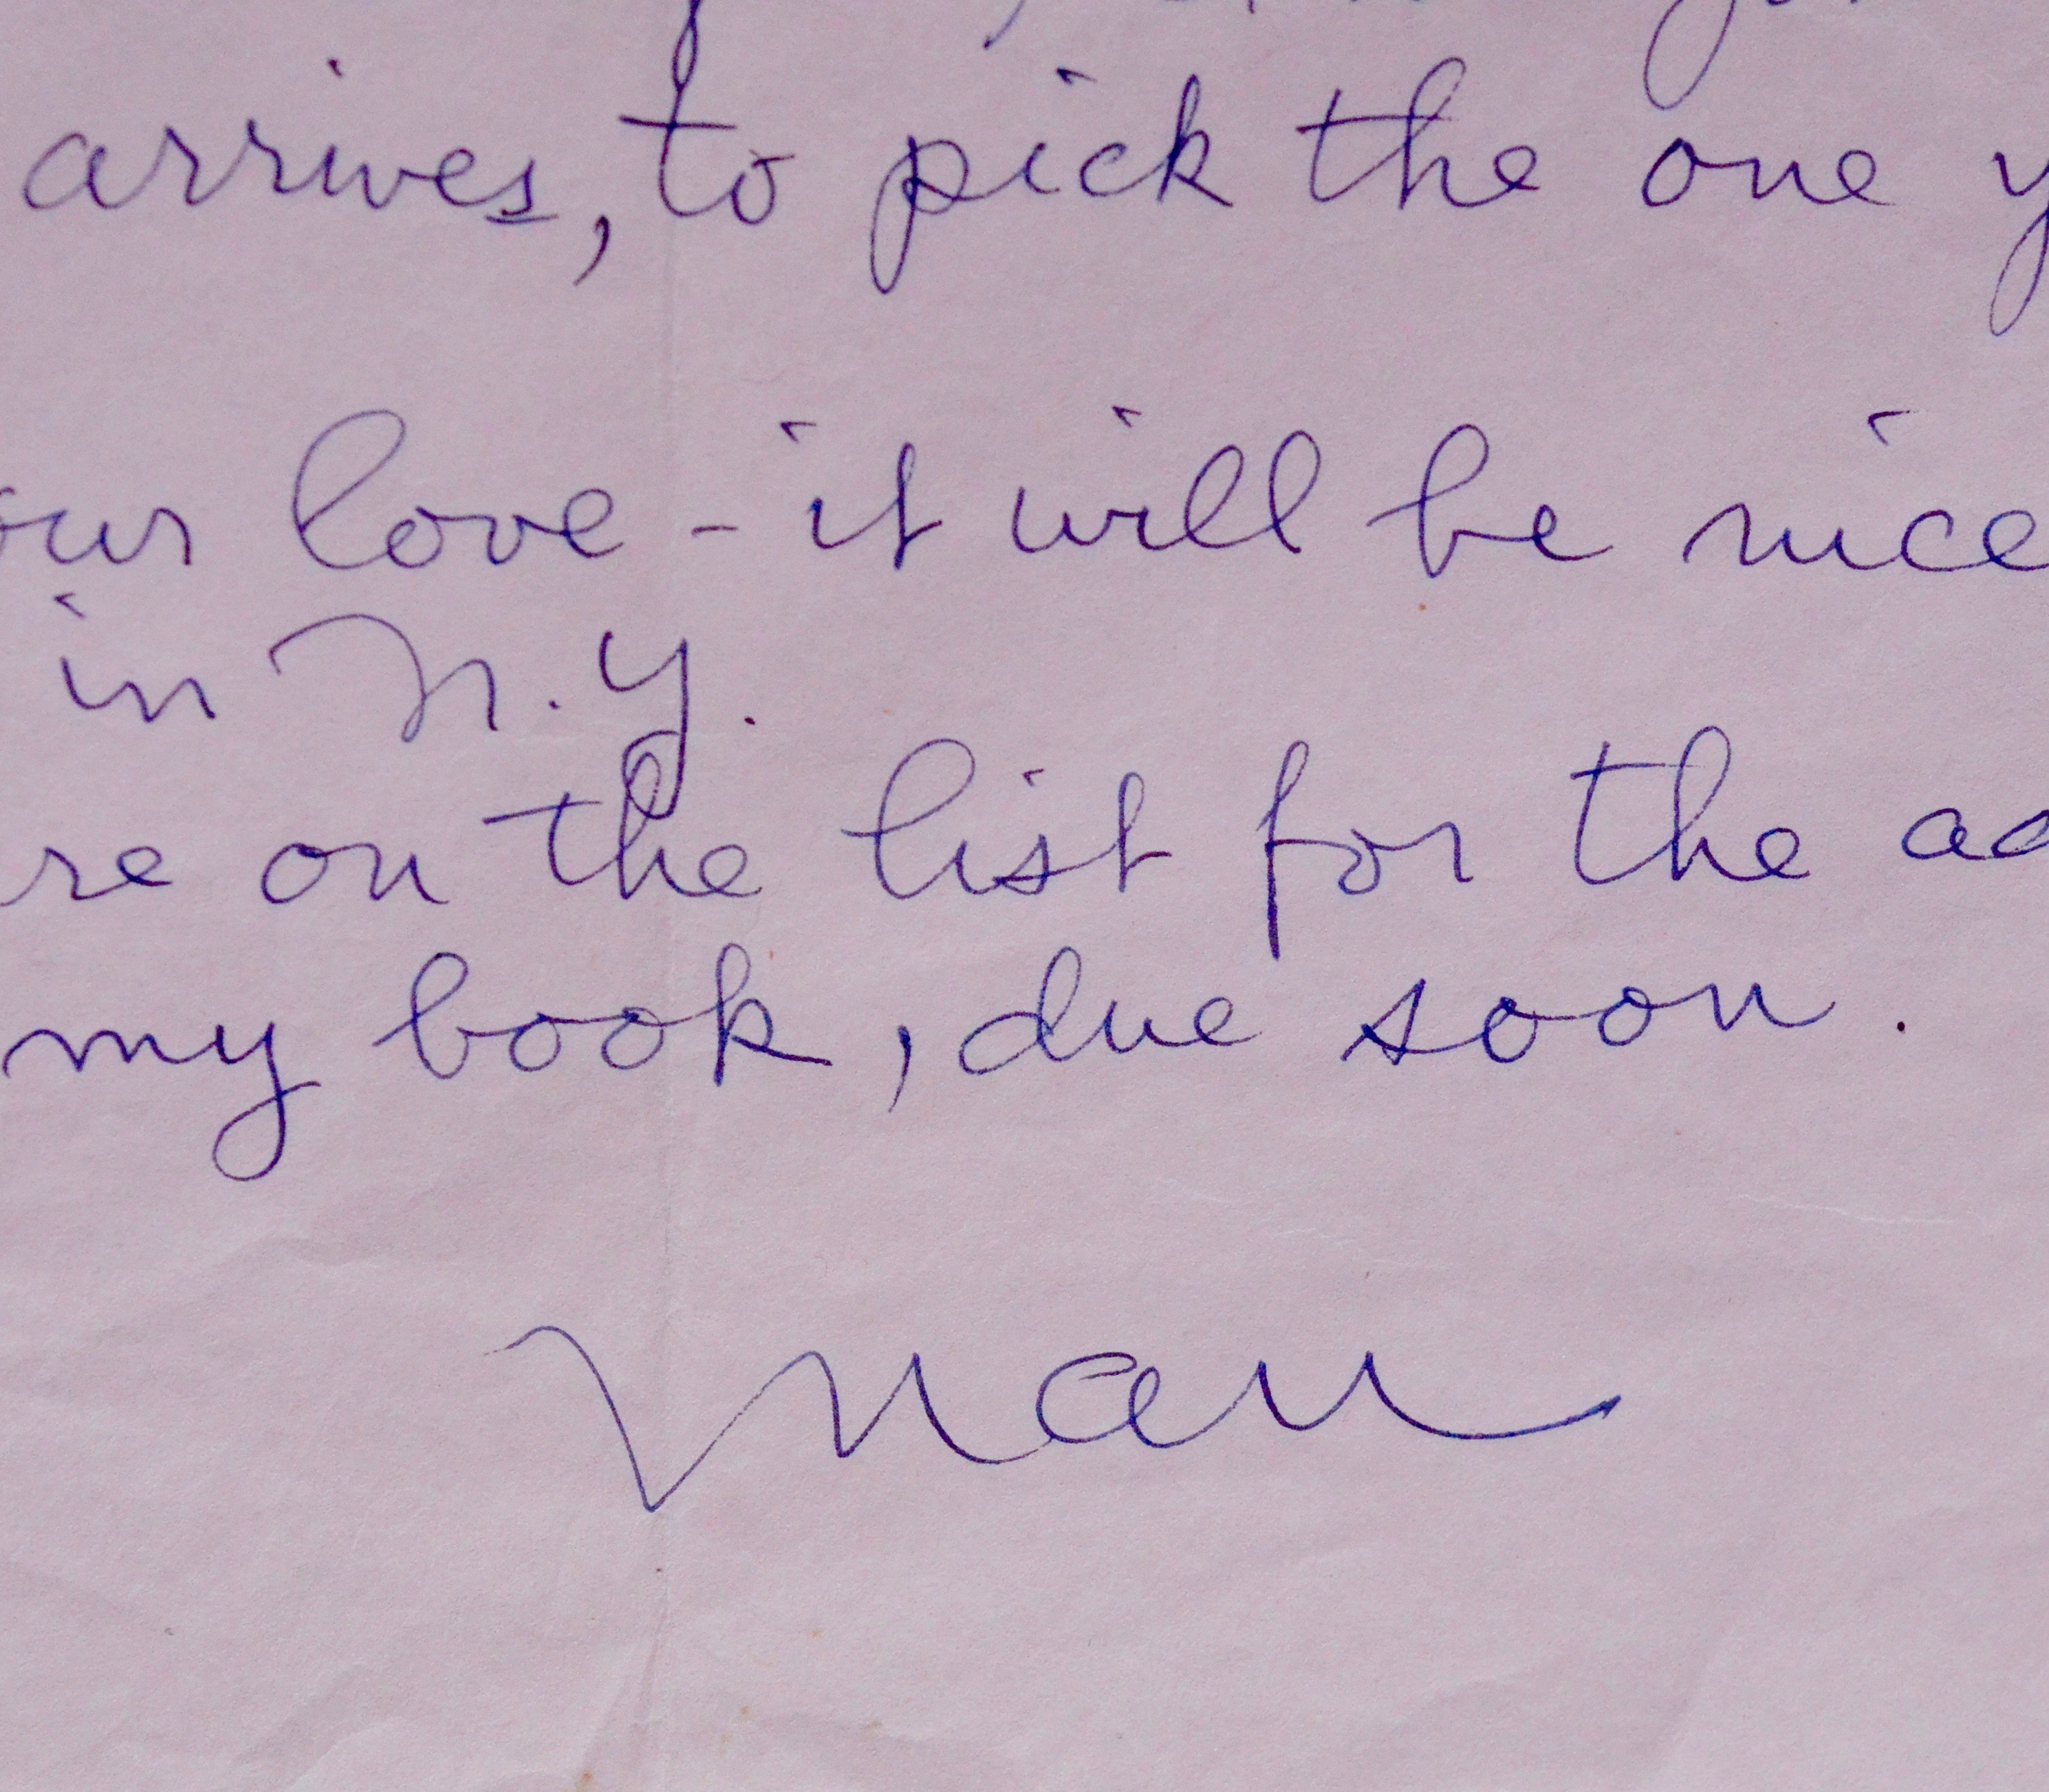 arrives, to pick the one
love - it will be nice
in N.Y.
on the list for the
my book, due soon.
Man